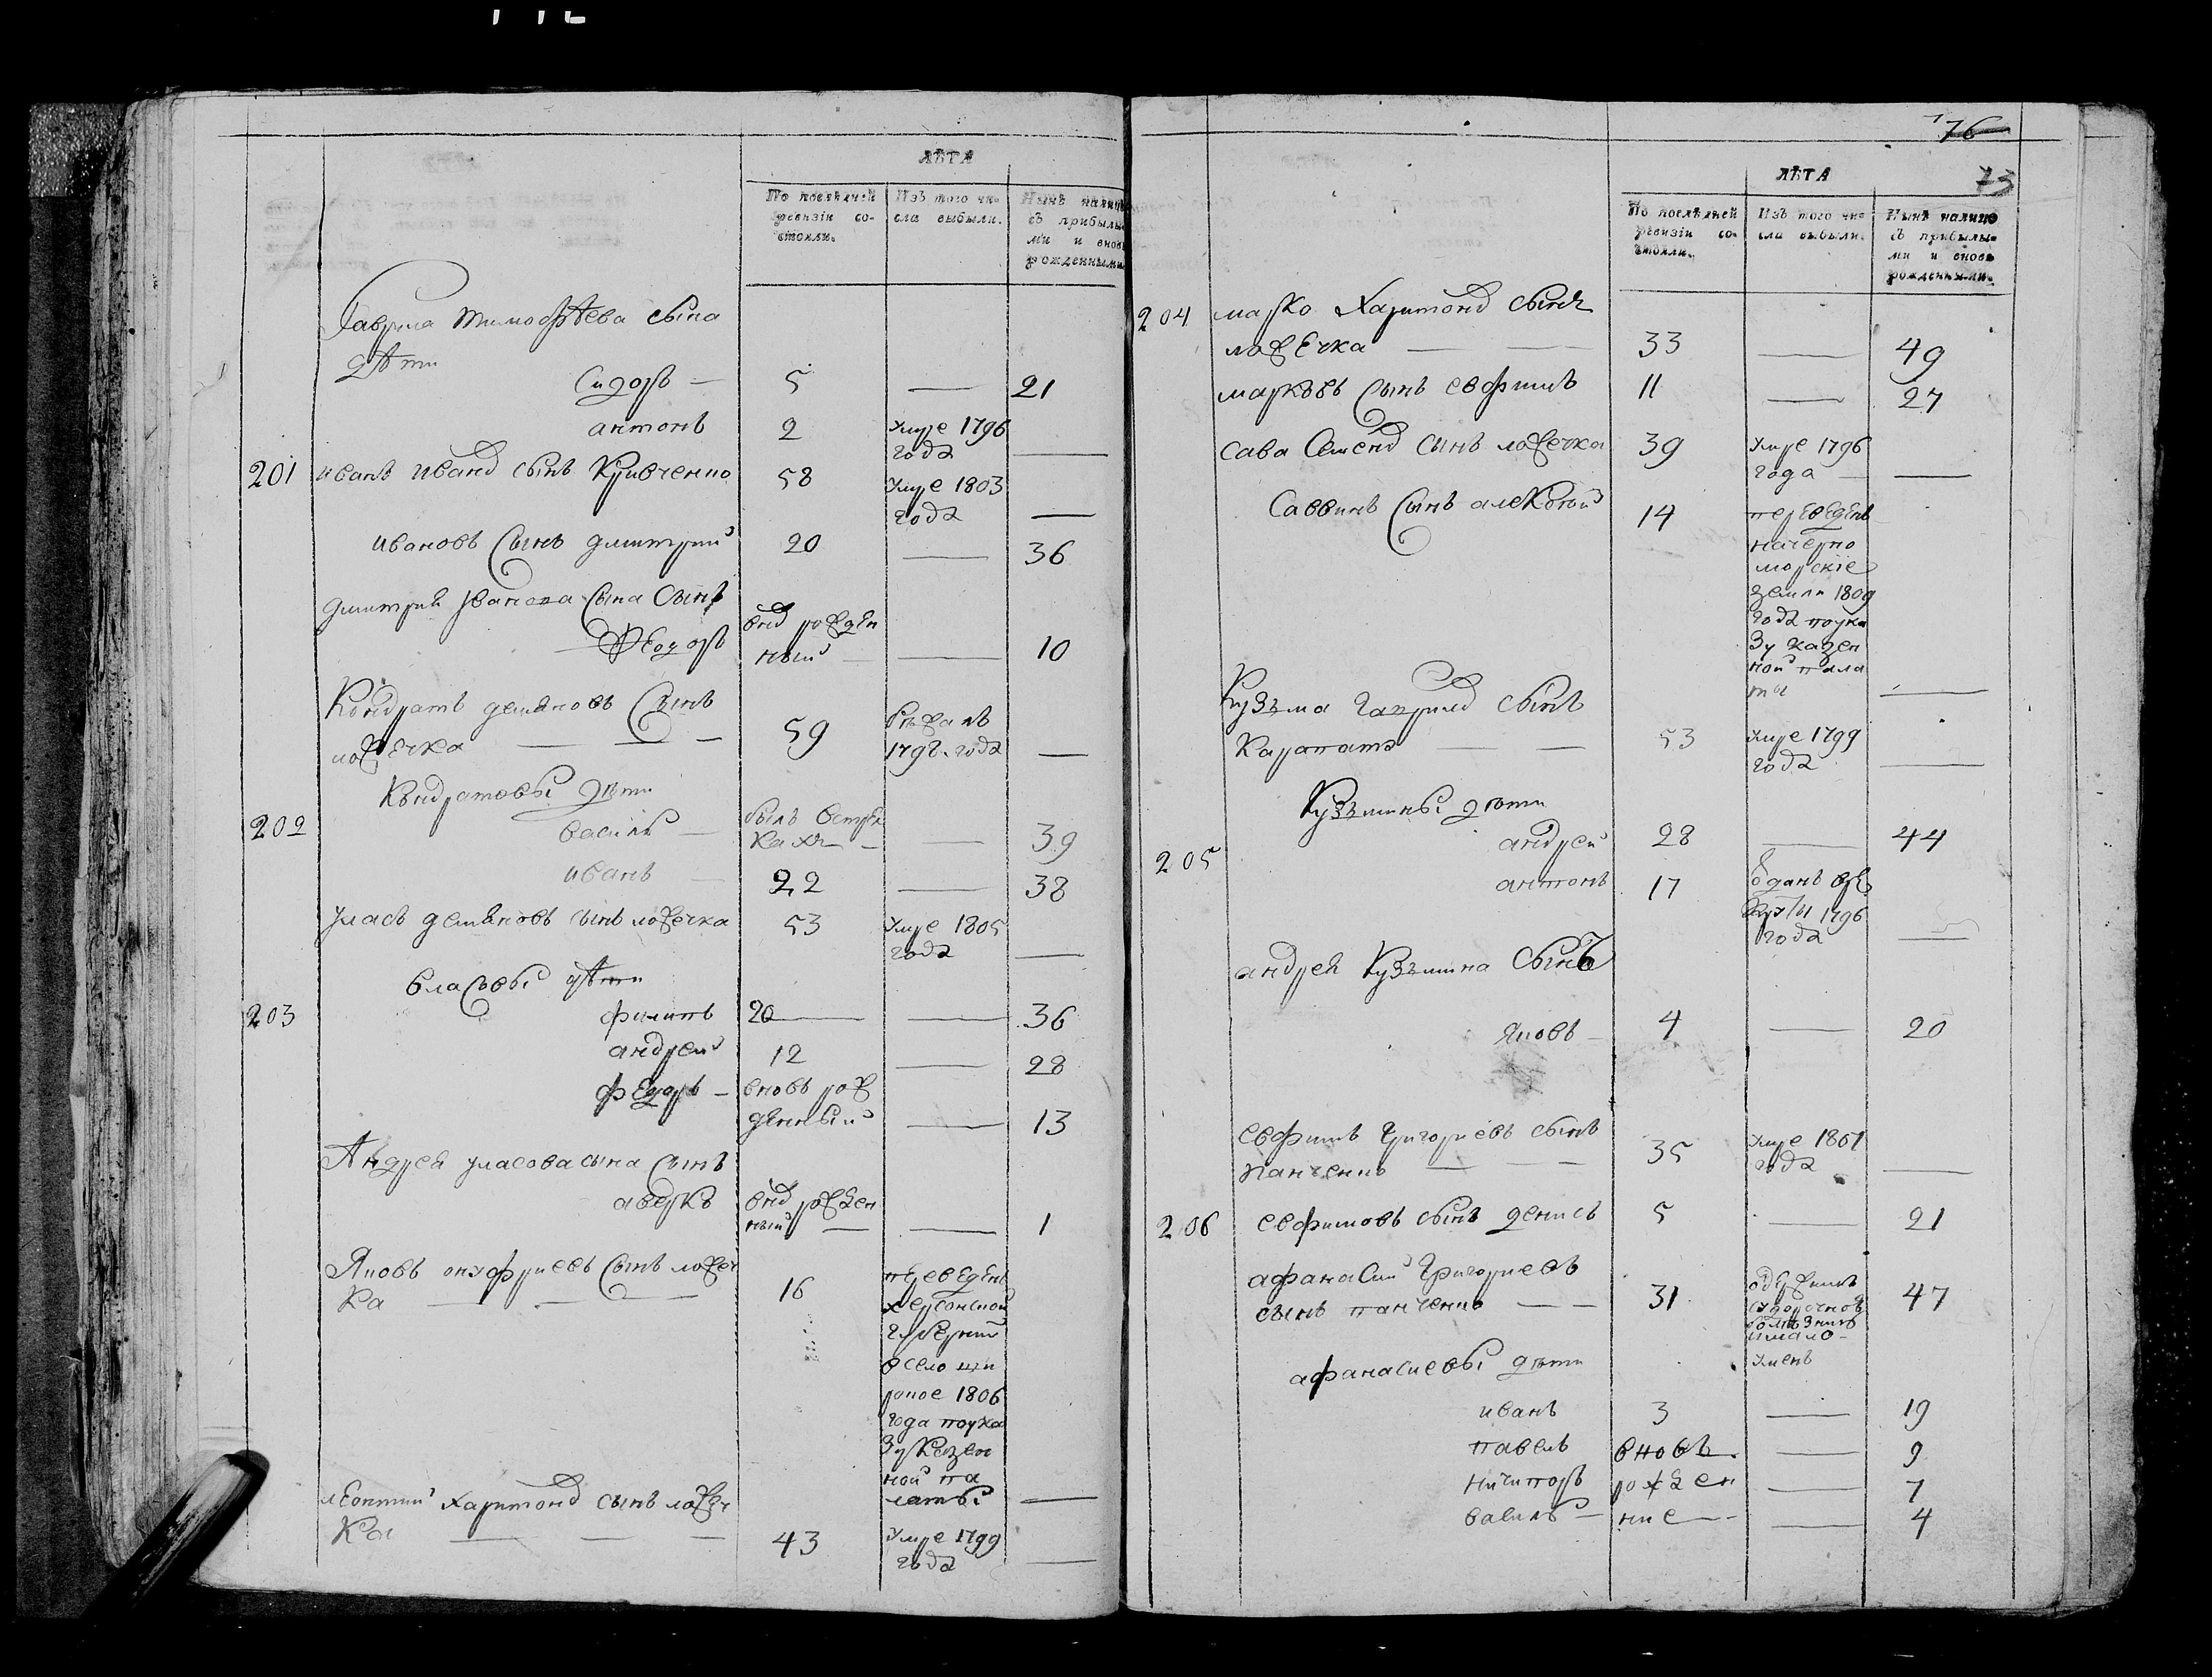 ЛѢТА
По послѣдней ревизіи со-
стояли.
Изъ того чи-
сла выбыли.
Нынѣ налицо
съ прибылы-
ми и вновь
рожденными.
Гаврила Тимофѣева сына
дѣти
Сидоръ — 5 — 21
антонъ 2 умре 1796
года —
201 иванъ иванов сынъ Кривченко 58 умре 1803
года —
ивановъ сынъ дмитрий 20 — 36
дмитрия Иванова сына сынъ
Федоръ внов рожден
ный — — 10
Кондратъ демяновъ сынъ
ложечка — — — 59 1798 года —
Кондратовы дѣти
202 василь — былъ в
— — 39
иванъ — 22 — 38
уласъ демяновъ сынъ ложечка 53 умре 1805
года —
власовы дѣти
203 филипъ 20 — — 36
андрей 12 — 28
федоръ — вновь рож
денный — 13
Андрея уласова сына сынъ
аверко внов рожден
ный — — 1
Яковъ онуфриевъ сынъ ложеч
ка — — — 16 переведенъ
херсонской
губернии
в село ши
рокое 1806
года по ука
зу казен
ной па
латы —
леонтий харитонов сынъ ложеч
ка — — — 43 умре 1799
года —
76
73
ЛѢТА
По послѣдней
ревизіи со-
стояли.
Изъ того чи-
сла выбыли.
Нынѣ налицо
съ прибылы-
ми и вновь
рожденными.
204 марко харитонов сынъ
ложечка — — 33 — 49
марковъ сынъ евфимъ 11 — 27
сава семенов сынъ ложечка 39 умре 1796
года — —
саввинъ сынъ алексѣй 14 переведенъ
на черно
морские
земли 1809
года по ука
зу казен
ной пала
ты —
Кузьма гаврилов сынъ
Карапата — — 53 умре 1799
года —
Кузьмины дѣти
205 андрей 28 — 44
антонъ 17 одданъ в ре
круты 1796
года —
андрея Кузьмина сынъ
яковъ — 4 — 20
евфимъ григориевъ сынъ
панченко — — 35 умре 1801
года —
206 евфимовъ сынъ денисъ 5 — 21
афанасий григориевъ
сынъ панченко — — 31 одержимъ
болѣзнию
и мало-
уменъ 47
афанасиевы дѣти
иванъ 3 — 19
павелъ вновь — 9
ничипоръ рожден — 7
василь — ние — — 4